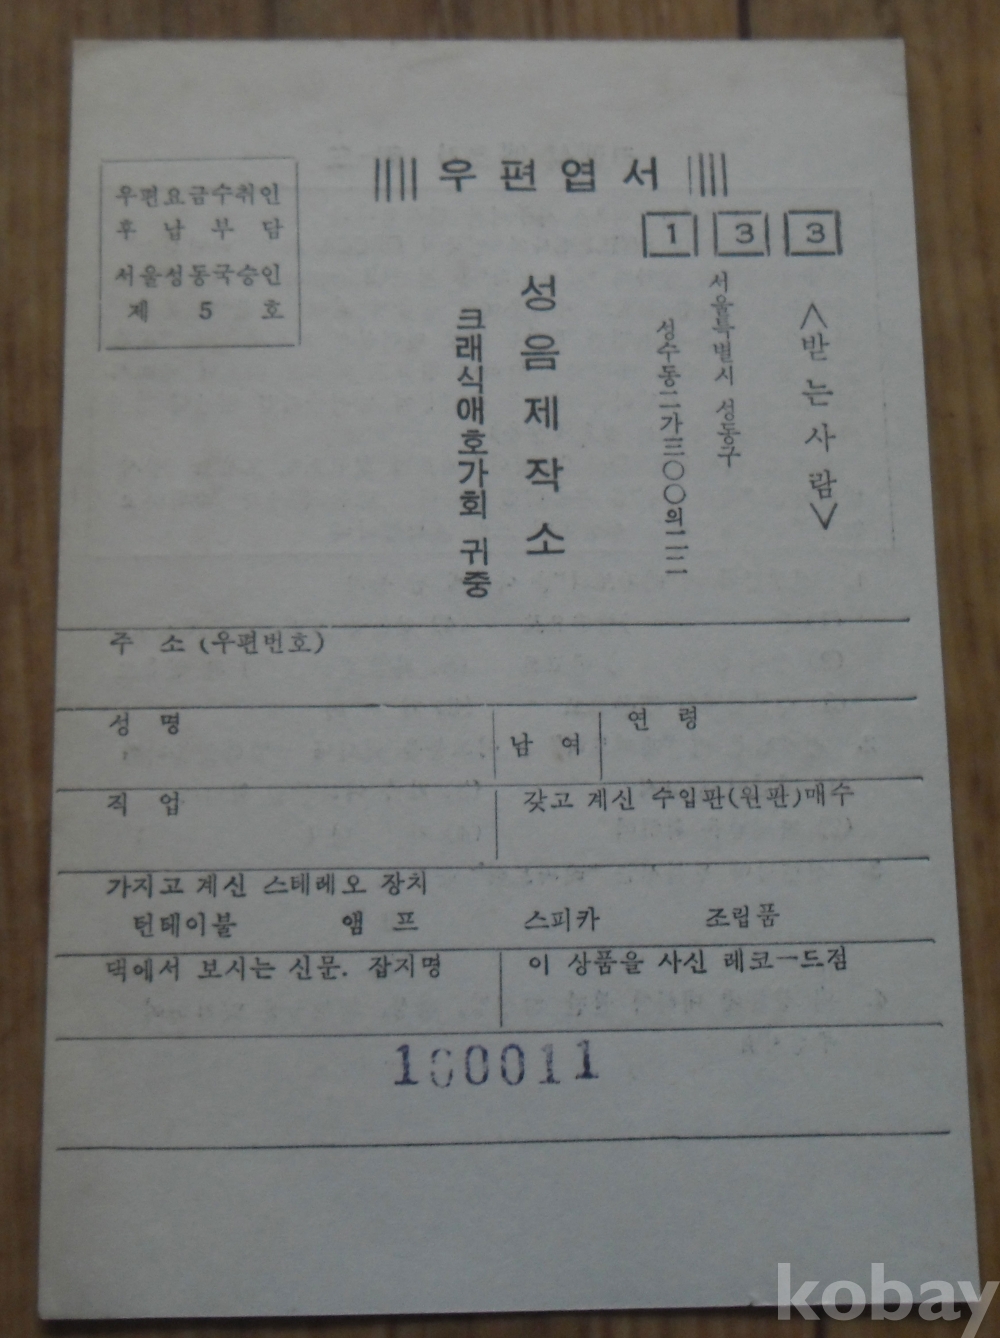 우편엽서
우편요금수취인
후납부담
서울성동국승인
제 5 호
1 3 3
<받는사람>
서울특별시 성동구
성수동二가三〇〇의二二
성음제작소
크래식애호가회 귀중
주 소 (우편번호)
성 명
남 여
연 령
직 업
갖고 계신 수입판(원판)매수
가지고 계신 스테레오 장치
턴테이블 앰 프 스피카 조립품
댁에서 보시는 신문. 잡지명
이 상품을 사신 레코ー드점
100011
kobay